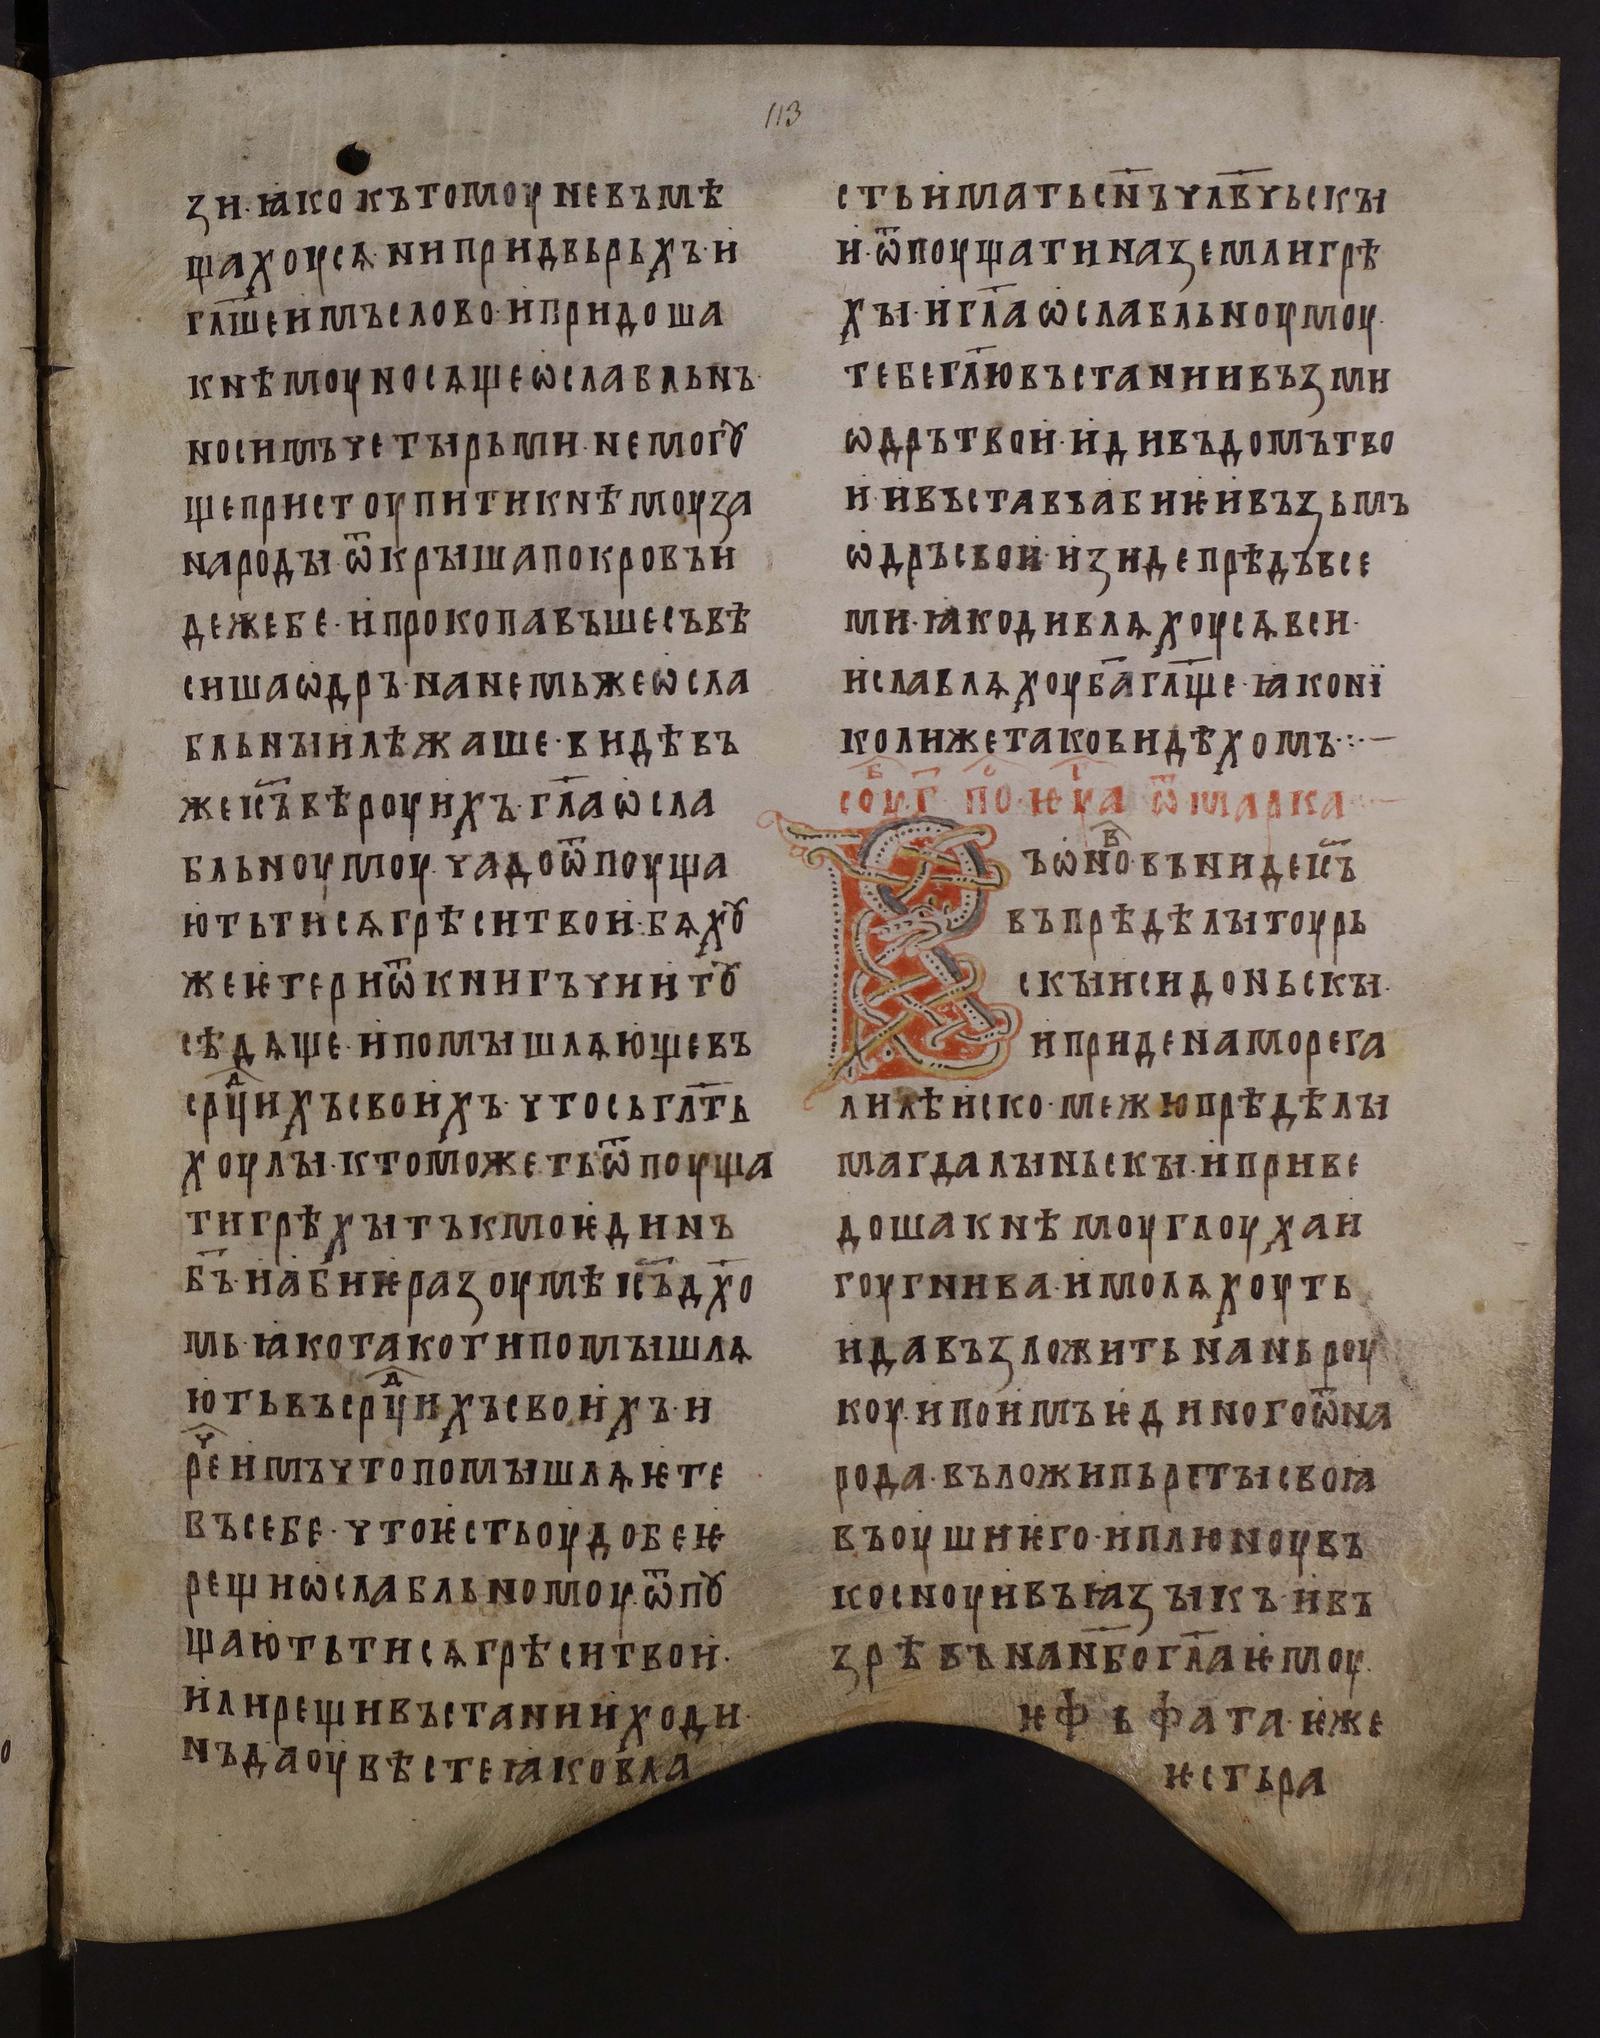 113
зи· ꙗко кътомоу невъмѣ
щахоусѧ· ни придвьрьхъ· и
гл҃ше имъ слово· и придоша
к нѣмоу носѧще ѡслабльнъ·
носимъ четырьми· не могꙋ
ще пристоупити к нѣмоу за
народы ѿкрыша покровъ и
деже бе· и прокопавъше съвѣ
сиша ѡдръ· на немьже ѡсла
бльныи лѣжаше· видѣвъ
же и҃съ вѣроу ихъ· гл҃а ѡсла
бльноумоу· чадо ѿпоуща
ютьтисѧ грѣси твои· бѧхꙋ
же ѥтери ѿ книгъчии тꙋ
сѣдѧще· и помышлѧюще въ
срⷣцихъ своихъ· что сь гл҃ть
хоулы· кто можеть ѿпоуща
ти грѣхы тъкмо ѥдинъ
б҃ъ· и абиѥ разоумѣ и҃съ дх҃о
мь· ꙗко тако ти помышлѧ
ють въ срⷣцихъ своихъ· и
реⷱ имъ что помышлѧѥте
въ себе· что ѥсть оудобеѥ
рещи ѡслабльномоу· ѿпꙋ
щаютьтисѧ грѣси твои·
или рещи въстани и ходи·
нъ да оувѣсте ꙗко вла
сть имать сн҃ъ чл҃вчьскы
и· ѿпоущати на земли грѣ
хы· и гл҃а ѡслабльноумоу·
тебе гл҃ю въстани и възми
ѡдръ твои· иди въ домъ тво
и· и въставъ абиѥ и възьмъ
ѡдръ свои· изиде прѣдъ все
ми· ꙗко дивлѧхоусѧ вси·
и славлѧхоу б҃а гл҃ще· ꙗко ни
колиже тако видѣхомъ·:·—
соуⷠ г҃ поⷭ· ѥуⷢа ѿ марка·—
Въ ѡноⷡ вънидеи҃съ
въ прѣдѣлы тоурь
скы и сидоньскы·
и приде на море га
лилѣиско· межю прѣдѣлы
магдалыньскы· и приве
доша к нѣмоу глоуха и
гоугнива· и молѧхоуть
и да възложить нань роу
коу· и поимъ ѥдиного ѿ на
рода· въложи пьрсты своꙗ
въ оуши ѥго· и плюноувъ
косноу и въ ꙗзыкъ· и въ
зрѣвъ на нб҃о гл҃а ѥмоу·
ѥфъфата· ѥже
ѥсть ра